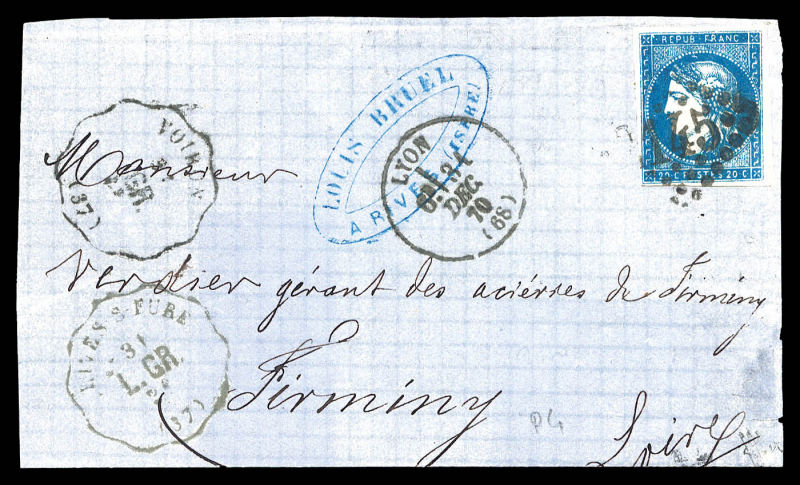 REPUB. FRANC.
20 C. POSTES 20 C.
LOUIS BRUEL
(ISERE)
LYON
31
DEC
70
(68)
VOIRON
GR.
(37)
Monsieur
Verdier gérant des aciéries de Firminy
RIVES S FURE
31
L. GR.
(37)
Firminy
Loire